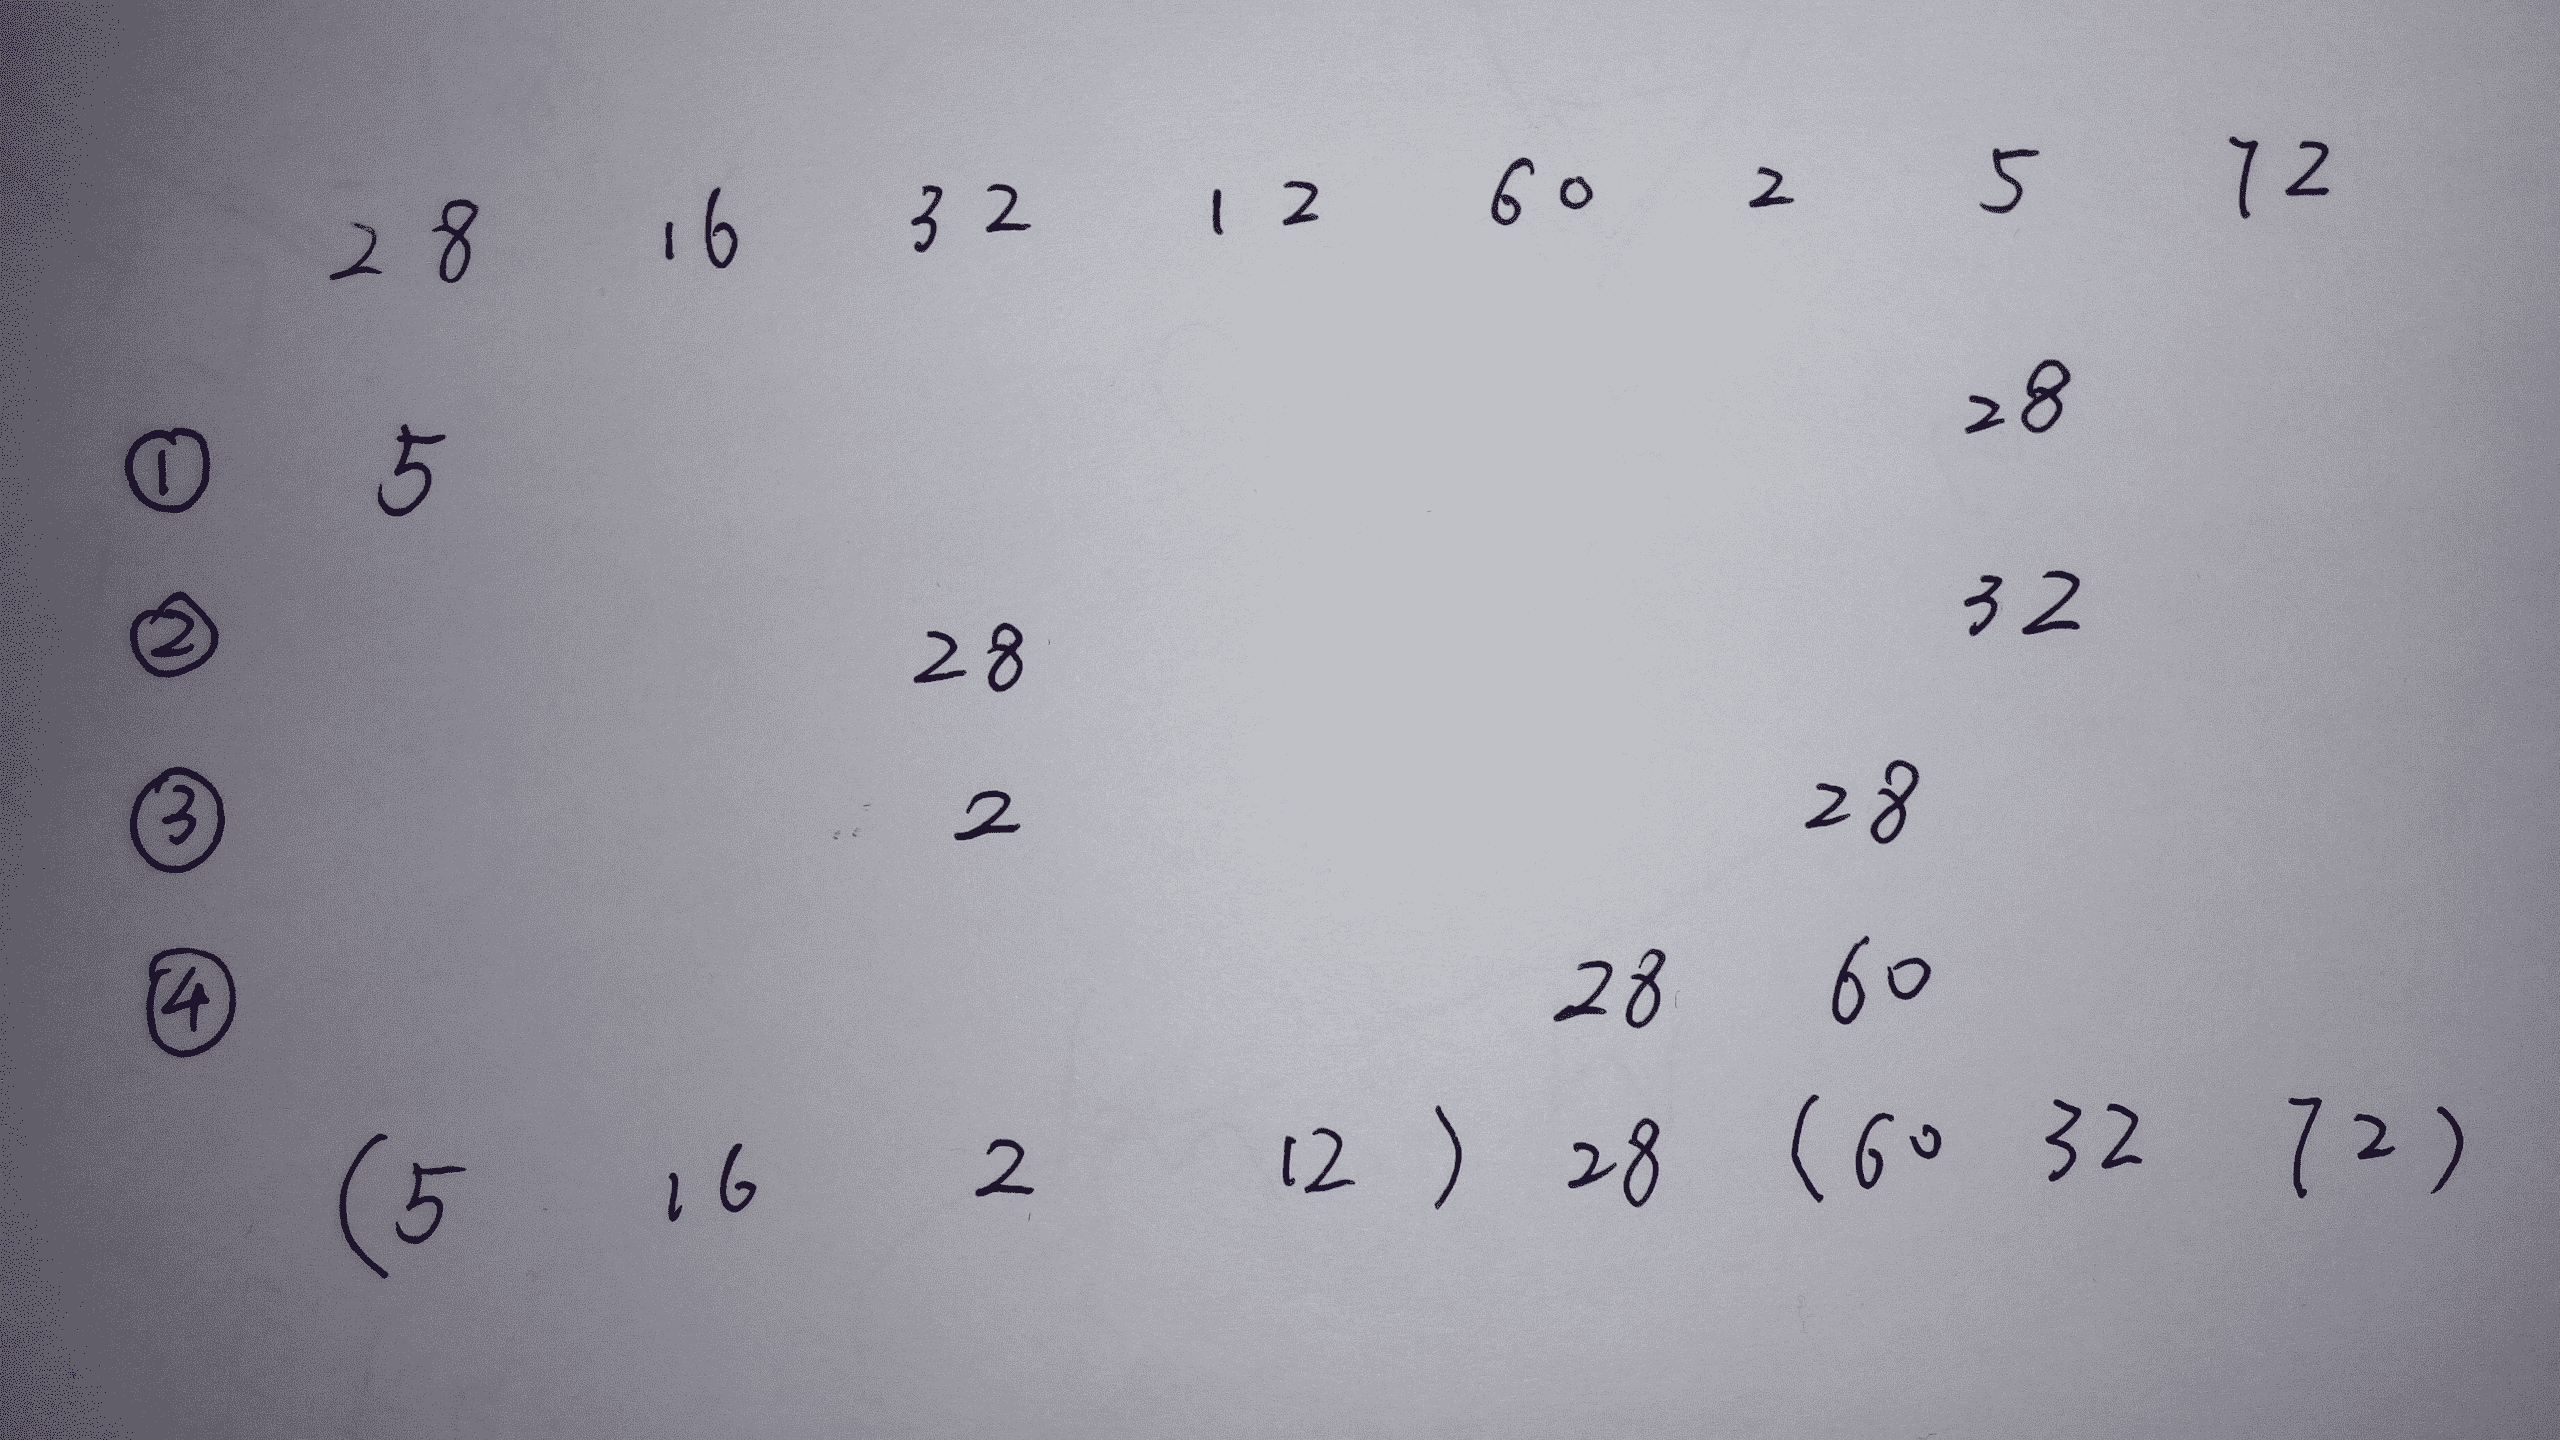 28 16 32 12 60 2 5 72
① 5 28
② 28 32
③ 2 28
④ 28 60
(5 16 2 12) 28 (60 32 72)